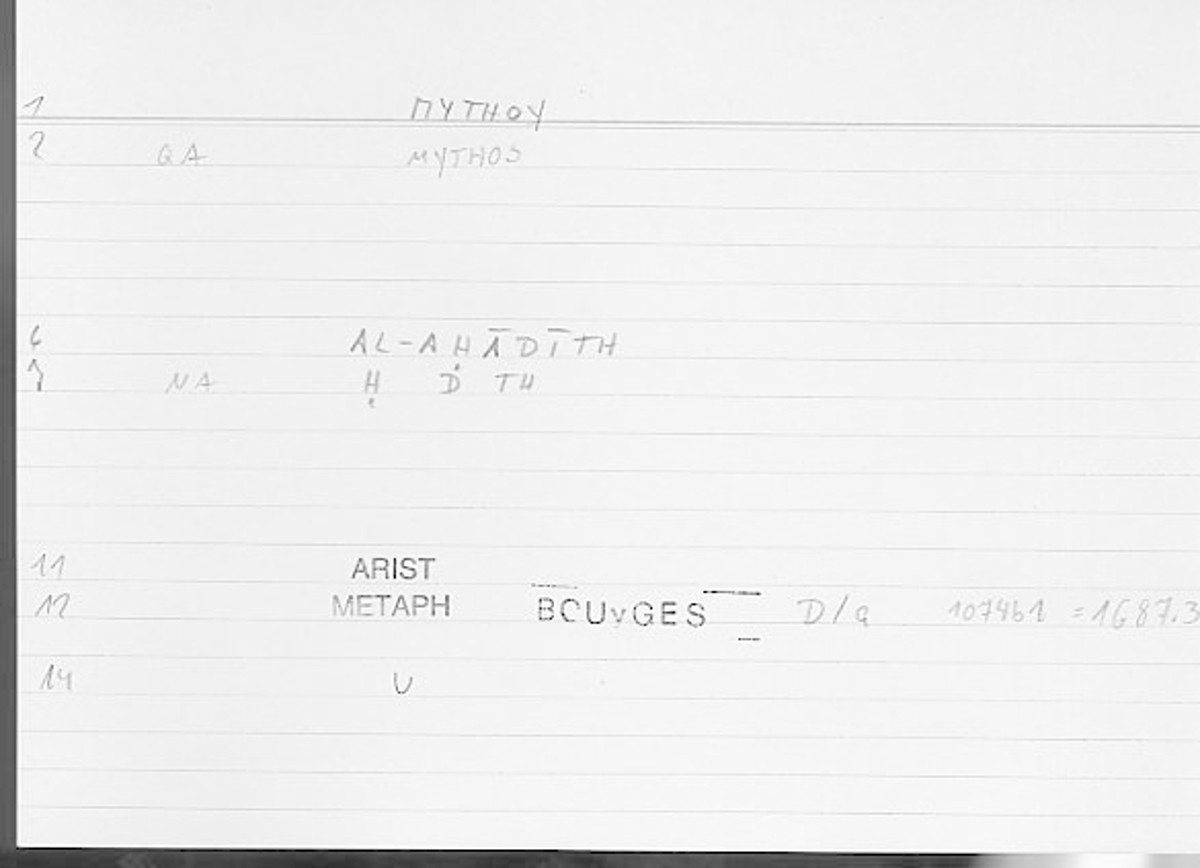 1 ΠΥΤΗΟΥ
2 QA MYTHOS
6 AL-AḤĀDĪTH
7 NA Ḥ D TH
11 ARIST
12 METAPH BOUyGES D/a 1074b1 =1687.3
14 U